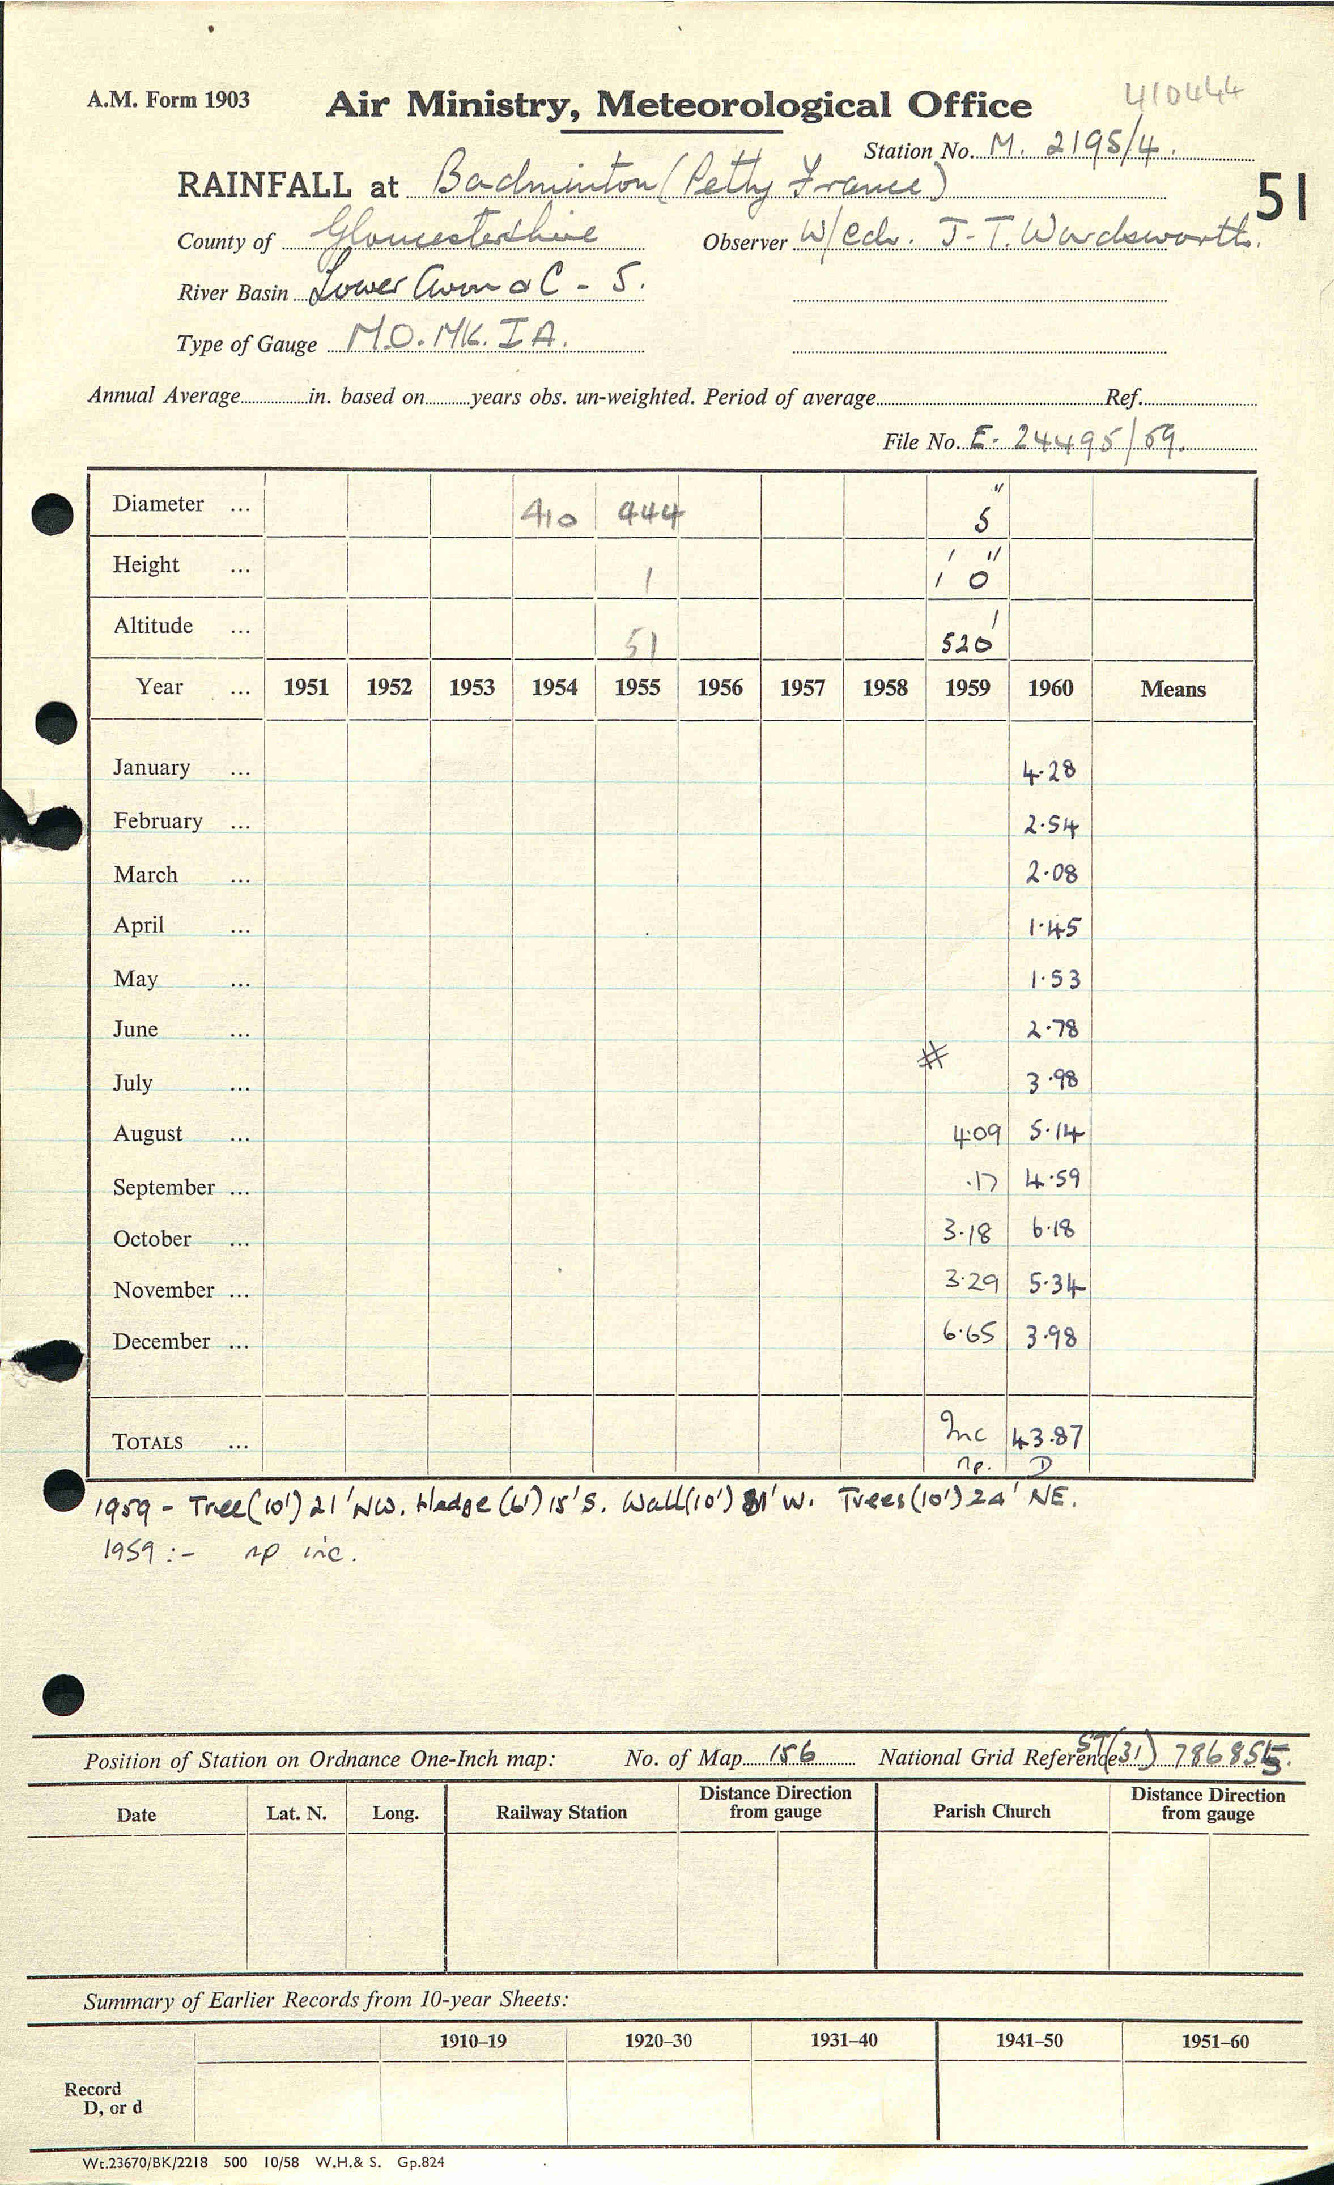 A.M. Form 1903
Air Ministry, Meteorological Office
410444
Station No. M. 2195/4.
RAINFALL at Badminton (Petty France)
51
County of Gloucestershire Observer W/Cdr. J.T. Wordsworth.
River Basin Lower Avon & C - 5.
Type of Gauge M.O. MK. IA.
Annual Average in. based on years obs. un-weighted. Period of average Ref.
File No. E- 24495/59.
Diameter ... 410 444 5"
Height ... 1 1' 0"
Altitude ... 51 520'
Year ... 1951 1952 1953 1954 1955 1956 1957 1958 1959 1960 Means
January ... 4.28
February ... 2.54
March ... 2.08
April ... 1.45
May ... 1.53
June ... 2.78
#
July ... 3.98
August ... 4.09 5.14
September ... .17 4.59
October ... 3.18 6.18
November ... 3.29 5.34
December ... 6.65 3.98
TOTALS ... Inc 43.87
np. D
1959 - Tree (10') 21' NW. Hedge (6') 15' S. Wall (10') W. Trees (10') 24' NE.
1959 :- np inc.
Position of Station on Ordnance One-Inch map: No. of Map 156 National Grid Reference ST(31) 786855.
Date Lat. N. Long. Railway Station Distance Direction from gauge Parish Church Distance Direction from gauge
Summary of Earlier Records from 10-year Sheets:
1910–19 1920–30 1931–40 1941–50 1951–60
Record
D, or d
Wt.23670/BK/2218 500 10/58 W.H.& S. Gp.824